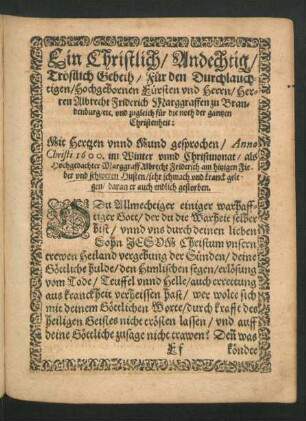 Ein Christlich/ Andechtig/
Tröstlich Gebeth/ Für den Durchlauch-
tigen/ Hochgebornen Fürsten vnd Herrn/ Her-
ren Albrecht Friderich Marggraffen zu Bran-
denburg/ etc. vnd zugleich für die noth der gantzen
Christenheit:
Mit Hertzen vnnd Mund gesprochen/ Anno
Christi 1600. im Winter vnnd Christmonat/ als
Hochgedachter Marggraff Albrecht Friderich am hitzigen Fie-
ber vnd schweren Husten/ sehr schwach vnd kranck gele-
gen/ daran er auch endlich gestorben.
DU Allmechtiger einiger warhaff-
tiger Gott/ der du die Warheit selber
bist/ vnnd vns durch deinen lieben
Sohn JESVM Christum vnsern
trewen Heiland vergebung der Sünden/ deine
Göttliche hulde/ den Himlischen segen/ erlösung
vom Tode/ Teuffel vnnd Helle/ auch errettung
aus kranckheit verheissen hast/ wer wolte sich
mit deinem Göttlichen Worte/ durch krafft des
heiligen Geistes nicht trösten lassen/ vnd auff
deine Göttliche zusage nicht trawen? Deñ was
Ef
köndte